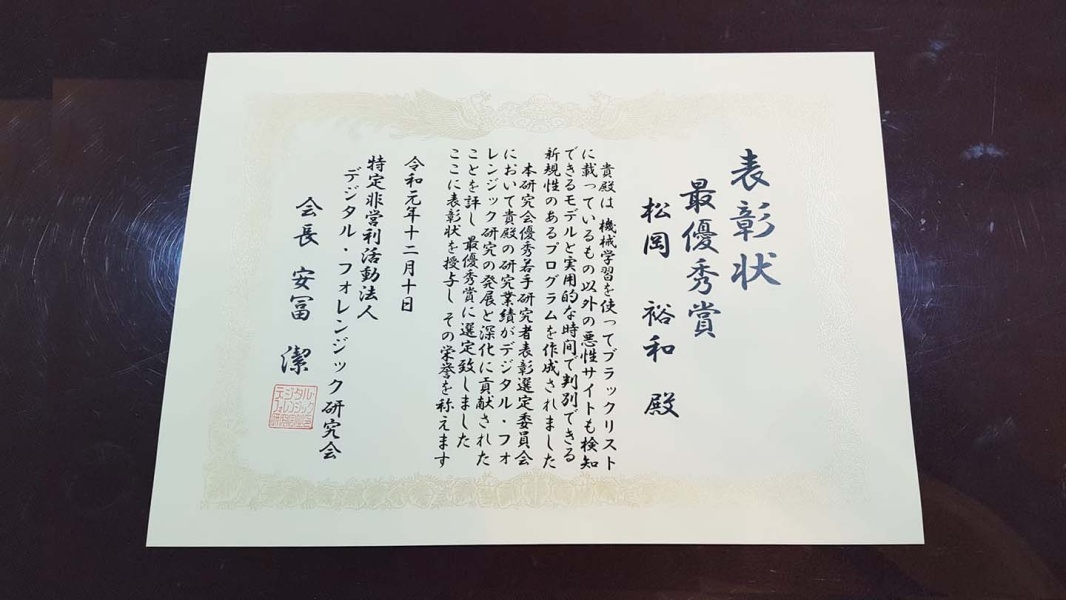 表彰状
最優秀賞
松岡 裕和 殿
貴殿は 機械学習を使ってブラックリスト
に載っているもの以外の悪性サイトも検知
できるモデルと実用的な時間で判別できる
新規性のあるプログラムを作成されました
本研究会優秀若手研究者表彰選定委員会
において貴殿の研究業績がデジタル・フォ
レンジック研究の発展と深化に貢献された
ことを評し 最優秀賞に選定致しました
ここに表彰状を授与し その栄誉を称えます
令和元年十二月十日
特定非営利活動法人
デジタル・フォレンジック研究会
会長 安冨 潔
デジタル・
フォレンジック